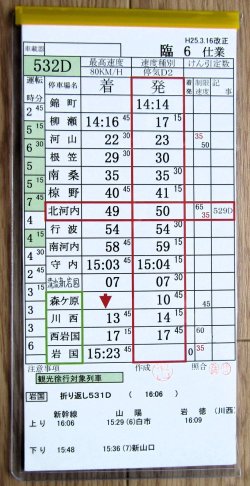 車載器 H25.3.16改正
臨 6 仕業
532D 最高速度 80KM/H 速度種別 停気D2 けん引定数
運転時分 停車場名 着 発 着発 制限速度 記事
錦町 14:14
2 45 柳瀬 14:16 45 17 15
5 15 河山 22 30 23 35 50
6 30 根笠 29 30 30
5 南桑 35 30 35 30
5 15 椋野 40 45 41 15
7 45 北河内 49 50 65 35 529D
4 行波 54 30 54 30
4 15 南河内 58 45 59 15
4 守内 15:03 45 15:04 15
3 07 30 07 30
3 森ケ原 10 45 45
2 30 川西 13 45 14 15
3 西岩国 17 15 17 45 60
6 岩国 15:23 45 0 35
注意事項 作成 照合
観光徐行対象列車
岩国 折り返し531D ( 16:06 )
新幹線 山陽 岩徳 (川西)
上り 16:06 15:29 (6)白市 16:09
下り 15:48 15:36 (7)新山口